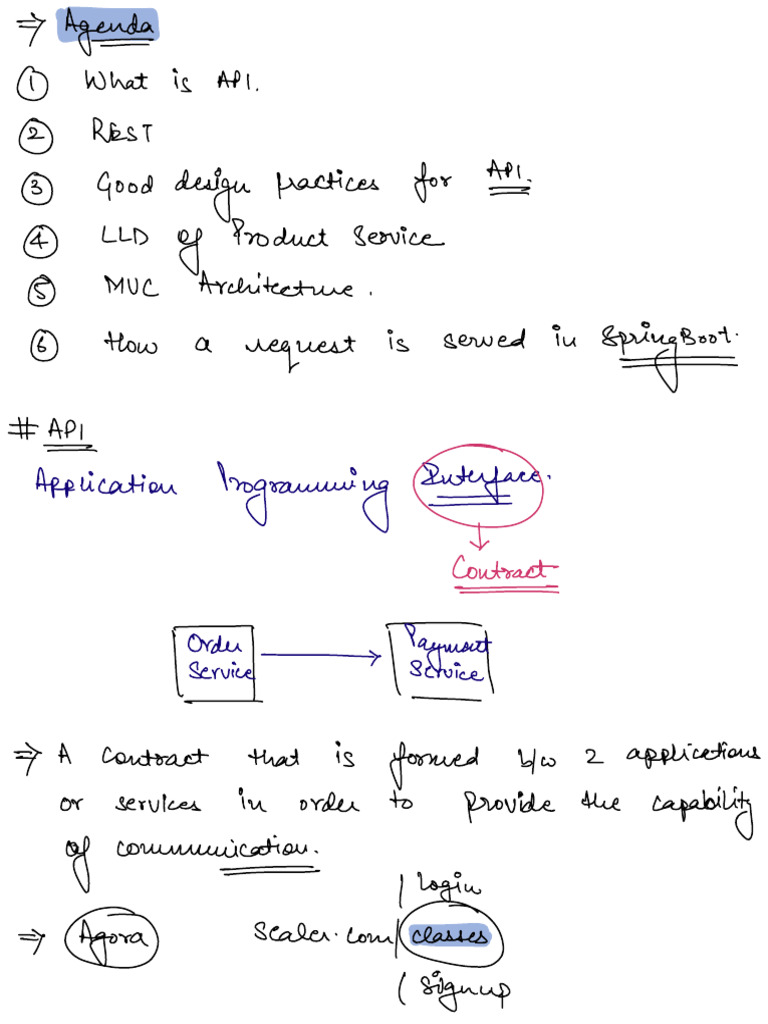 ⇒ Agenda
① What is API.
② REST
③ Good design practices for API.
④ LLD of Product Service
⑤ MVC Architecture.
⑥ How a request is served in SpringBoot.
# API
Application Programming Interface.
Contract
Order Service
Payment Service
⇒ A contract that is formed b/w 2 applications
or services in order to provide the capability
of communication.
/ login
⇒ Agora scaler.com/classes
/ signup